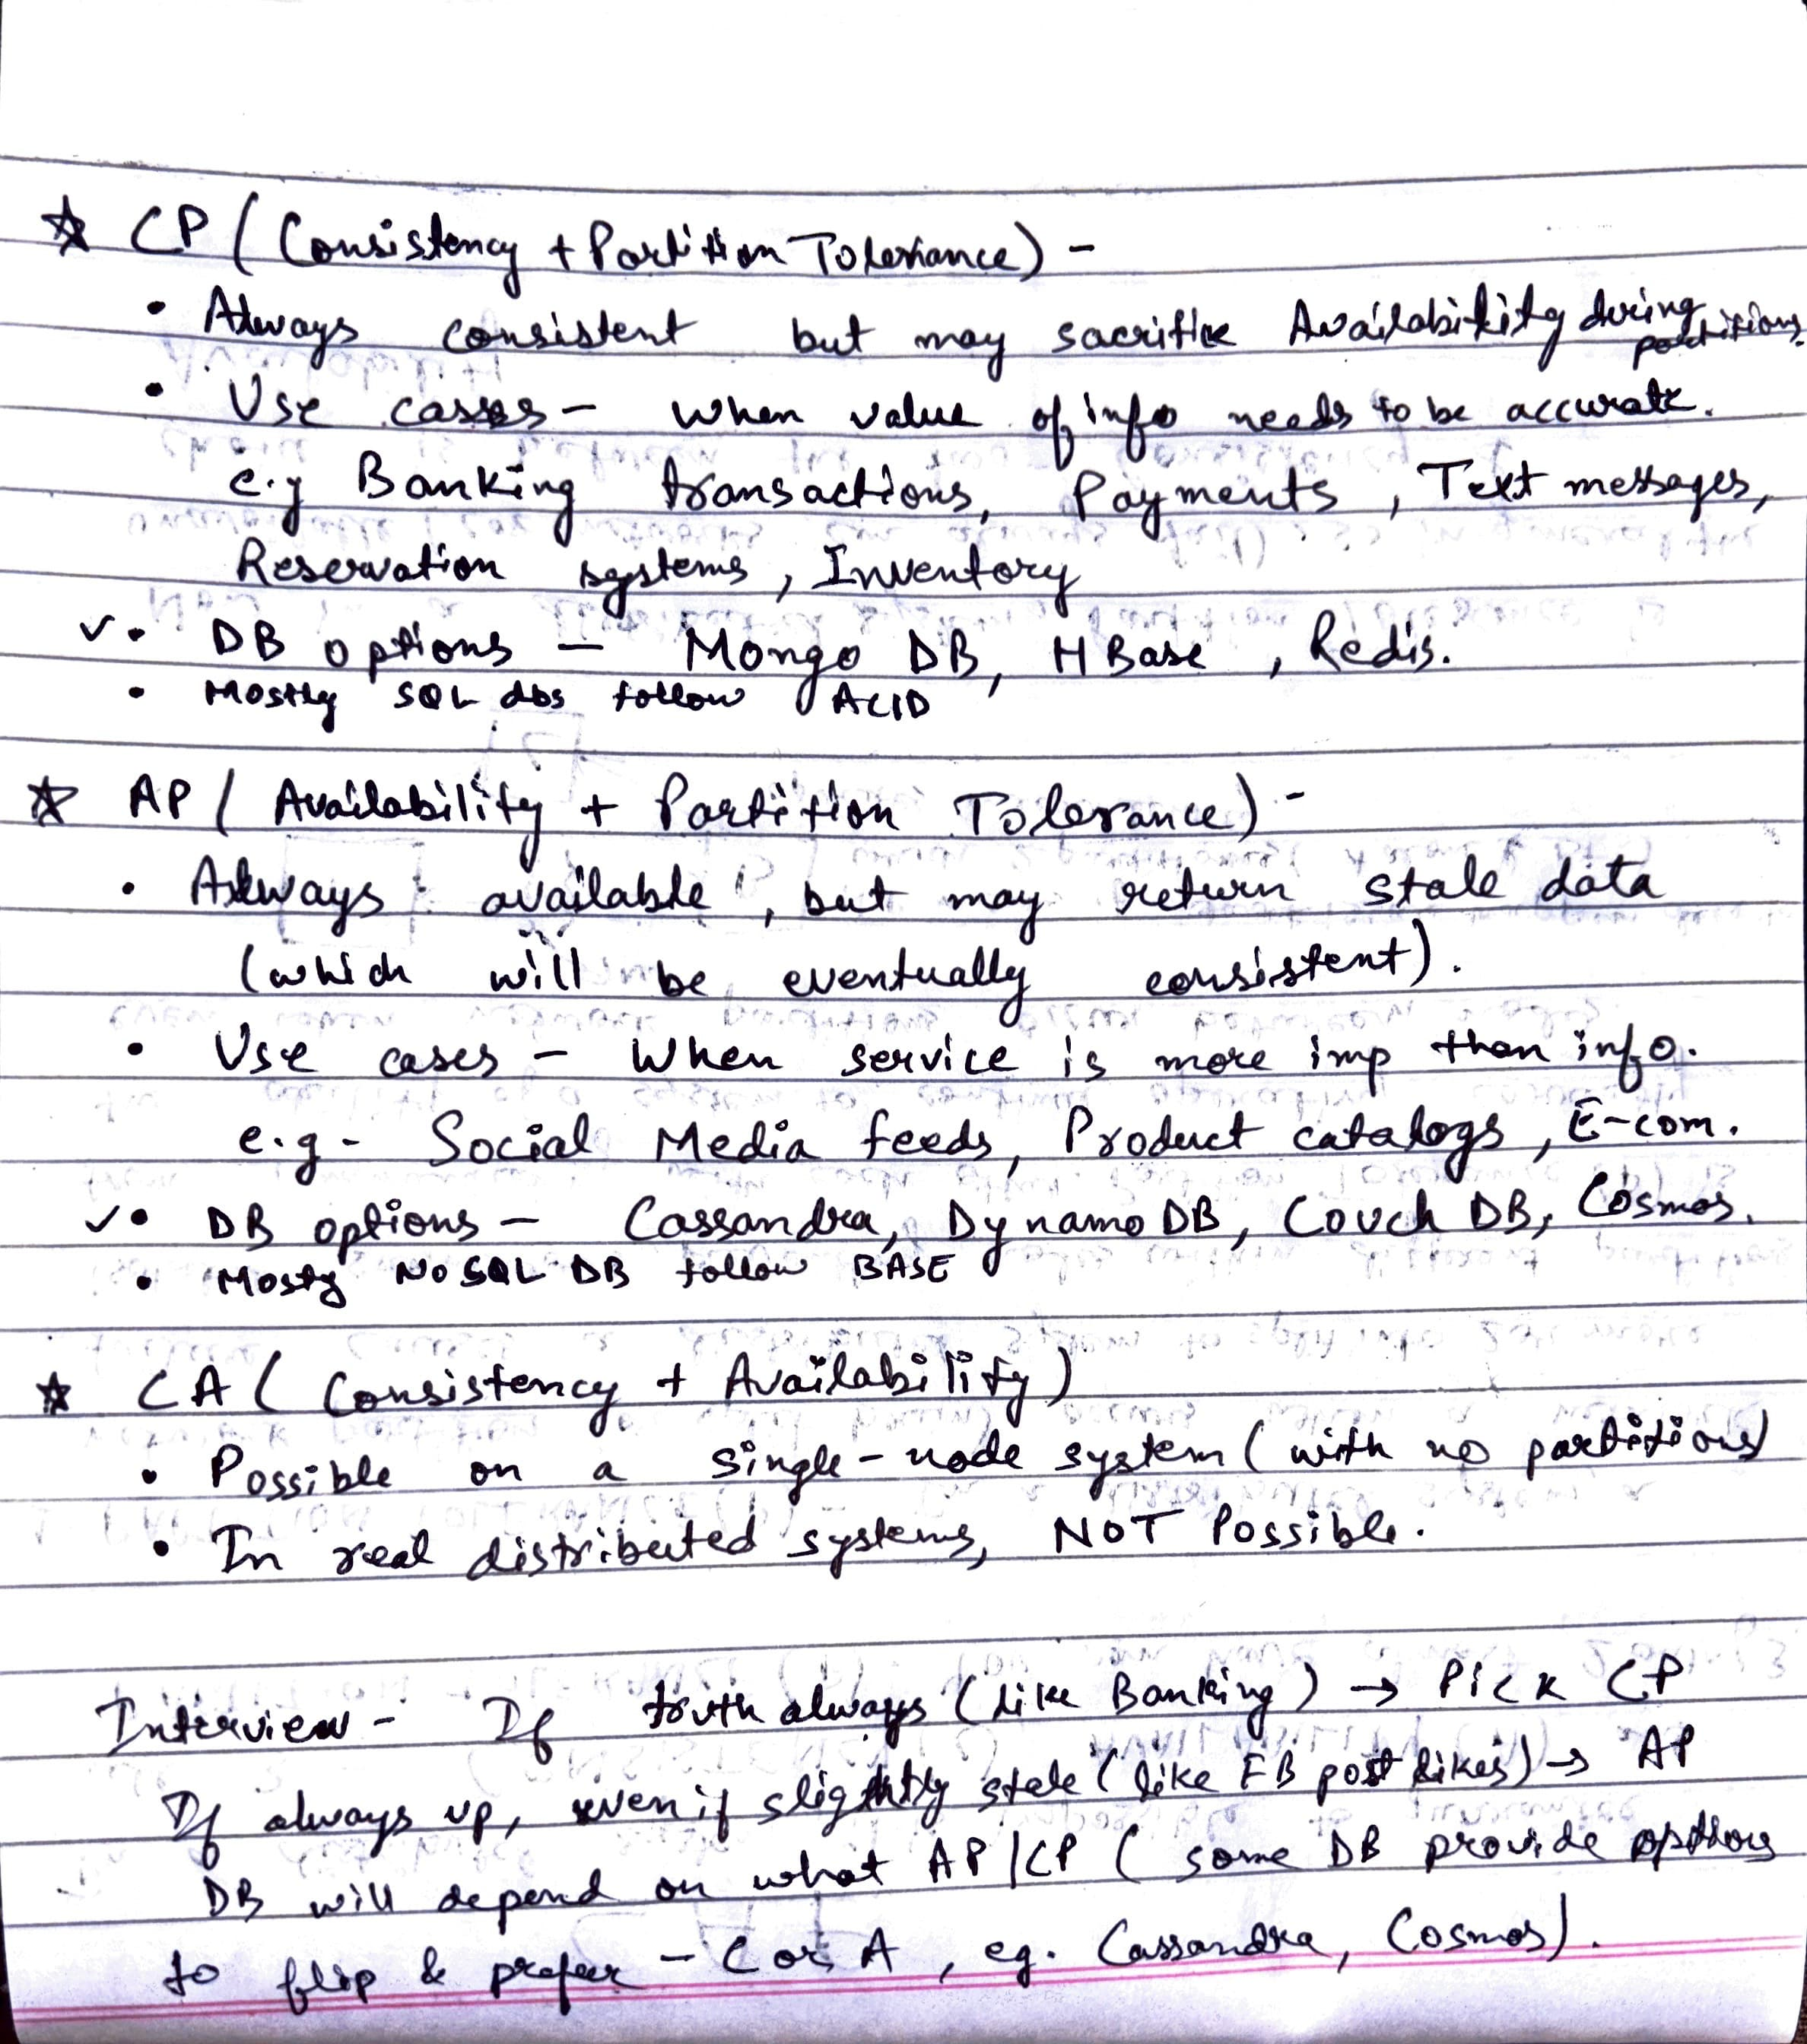 ☆ CP ( Consistency + Partition Tolerance) -
• Always consistent but may sacrifice Availability during partitions.
• Use cases - When value of info needs to be accurate.
e.g Banking transactions, Payments, Text messages,
Reservation systems, Inventory
✓• DB options - Mongo DB, HBase, Redis.
• Mostly SQL dbs follow ACID
☆ AP ( Availability + Partition Tolerance) -
• Always available, but may return stale data
(which will be eventually consistent).
• Use cases - When service is more imp than info.
e.g - Social Media feeds, Product catalogs, E-com.
✓• DB options - Cassandra, Dynamo DB, Couch DB, Cosmos.
• Mosty No SQL DB follow BASE
☆ CA ( Consistency + Availability)
• Possible on a single-node system ( with no partitions)
• In real distributed systems, NOT Possible.
Interview - If truth always (like Banking) → Pick CP
If always up, even if slightly stale (like FB post likes) → AP
DB will depend on what AP/CP ( some DB provide options
to flip & prefer - C or A, eg. Cassandra, Cosmos).